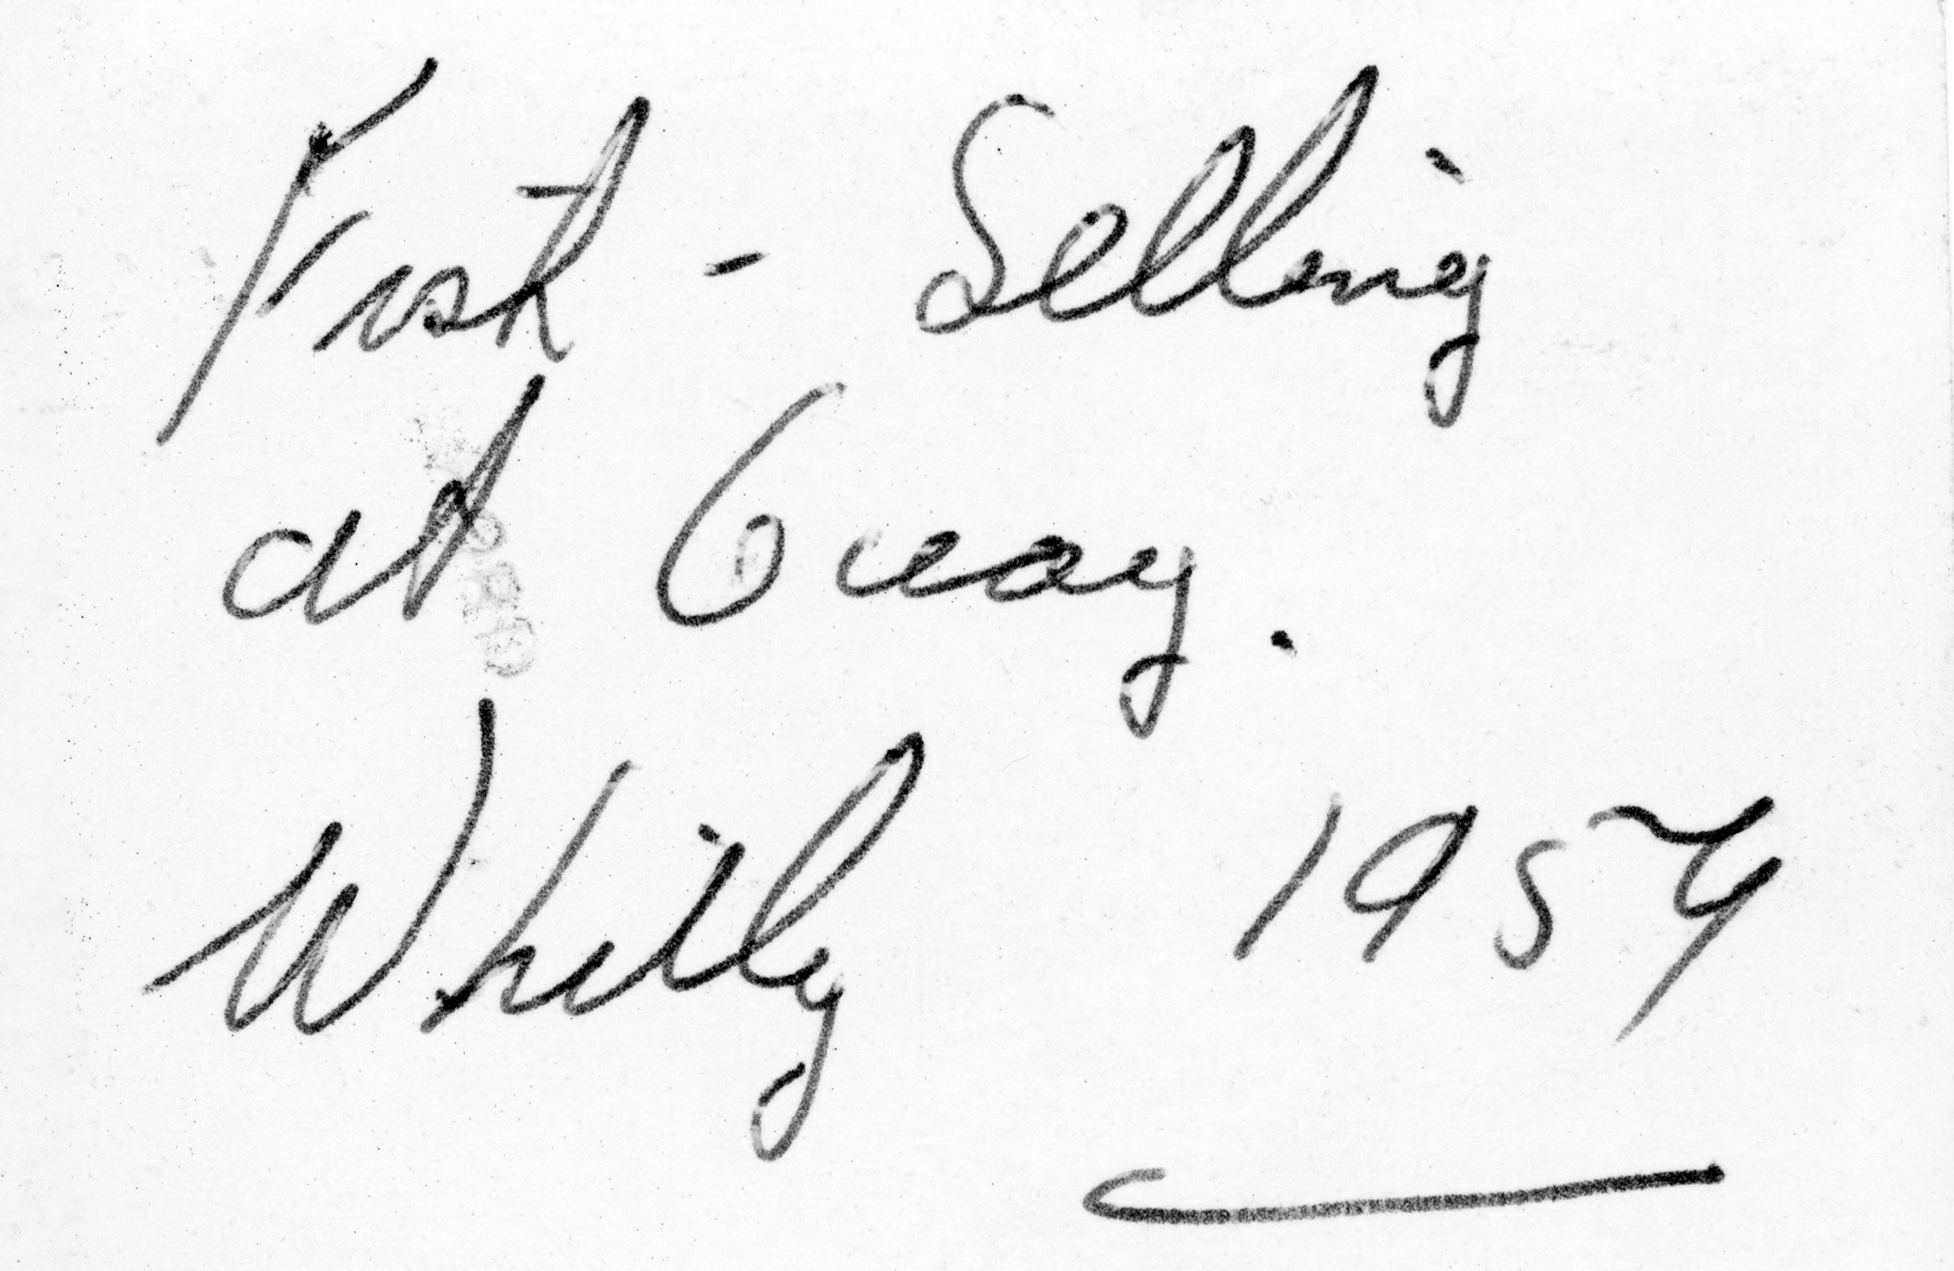 Fish - Selling
at Quay.
Whitby 1954